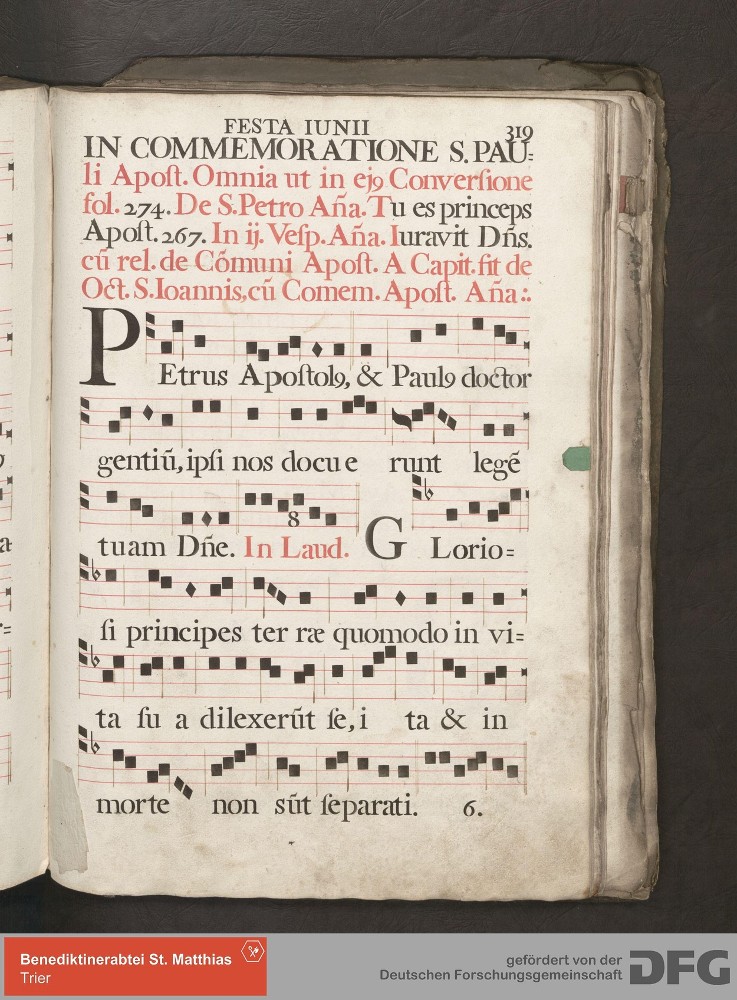 FESTA IUNII 319
IN COMMEMORATIONE S. PAU⹀
li Apoſt. Omnia ut in ejꝰ Converſione
fol. 274. De S. Petro Aña. Tu es princeps
Apoſt. 267. In ij. Veſp. Aña. Iuravit Dñs.
cũ rel. de Cõmuni Apoſt. A Capit. fit de
Oct. S. Ioannis, cũ Comem. Apoſt. Aña:.
PEtrus Apoſtolꝰ, & Paulꝰ doctor
gentiũ, ipſi nos docue runt legẽ
tuam Dñe. In Laud. 8 GLorio⹀
ſi principes ter ræ quomodo in vi⹀
ta ſu a dilexerũt ſe, i ta & in
morte non sũt ſeparati. 6.
Benediktinerabtei St. Matthias
Trier
gefördert von der
Deutschen Forschungsgemeinschaft
DFG